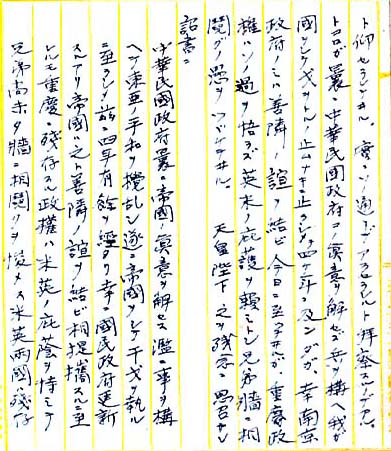 ト仰セラレテヰル。實ニソノ通リデアラセラルルト拝察スルノデアル。
トコロガ曩ニ中華民國政府ハコノ眞意ヲ解セズ事ヲ構ヘ我ガ
國ヲシテ戈ヲトルノ止ムナキニ至ラシメ四ケ年ニ及ンダガ、幸南京
政府ノミハ善隣ノ誼ヲ結ビ今日ニ至ツテヰルガ、重慶政
権ハソノ過ヲ悟ラズ英米ノ庇護ヲ頼ミトシ兄弟牆ニ相
鬩グノ愚ヲツヾケテヰル。 天皇陛下 之ヲ残念ニ思召サレ
詔書ニ
中華民國政府曩ニ帝國ノ眞意ヲ解セス濫ニ事ヲ構
ヘテ東亞ノ平和ヲ攪乱シ遂ニ帝國ヲシテ干戈ヲ執ル
ニ至ラシメ茲ニ四年有餘ヲ經タリ幸ニ國民政府更新
スルアリ帝國ハ之ト善隣ノ誼ヲ結ビ相提攜スルニ至
レルモ重慶ニ残存スル政權ハ米英ノ庇蔭ヲ恃ミテ
兄弟尚未タ牆ニ相鬩クヲ悛メス米英兩國ハ残存